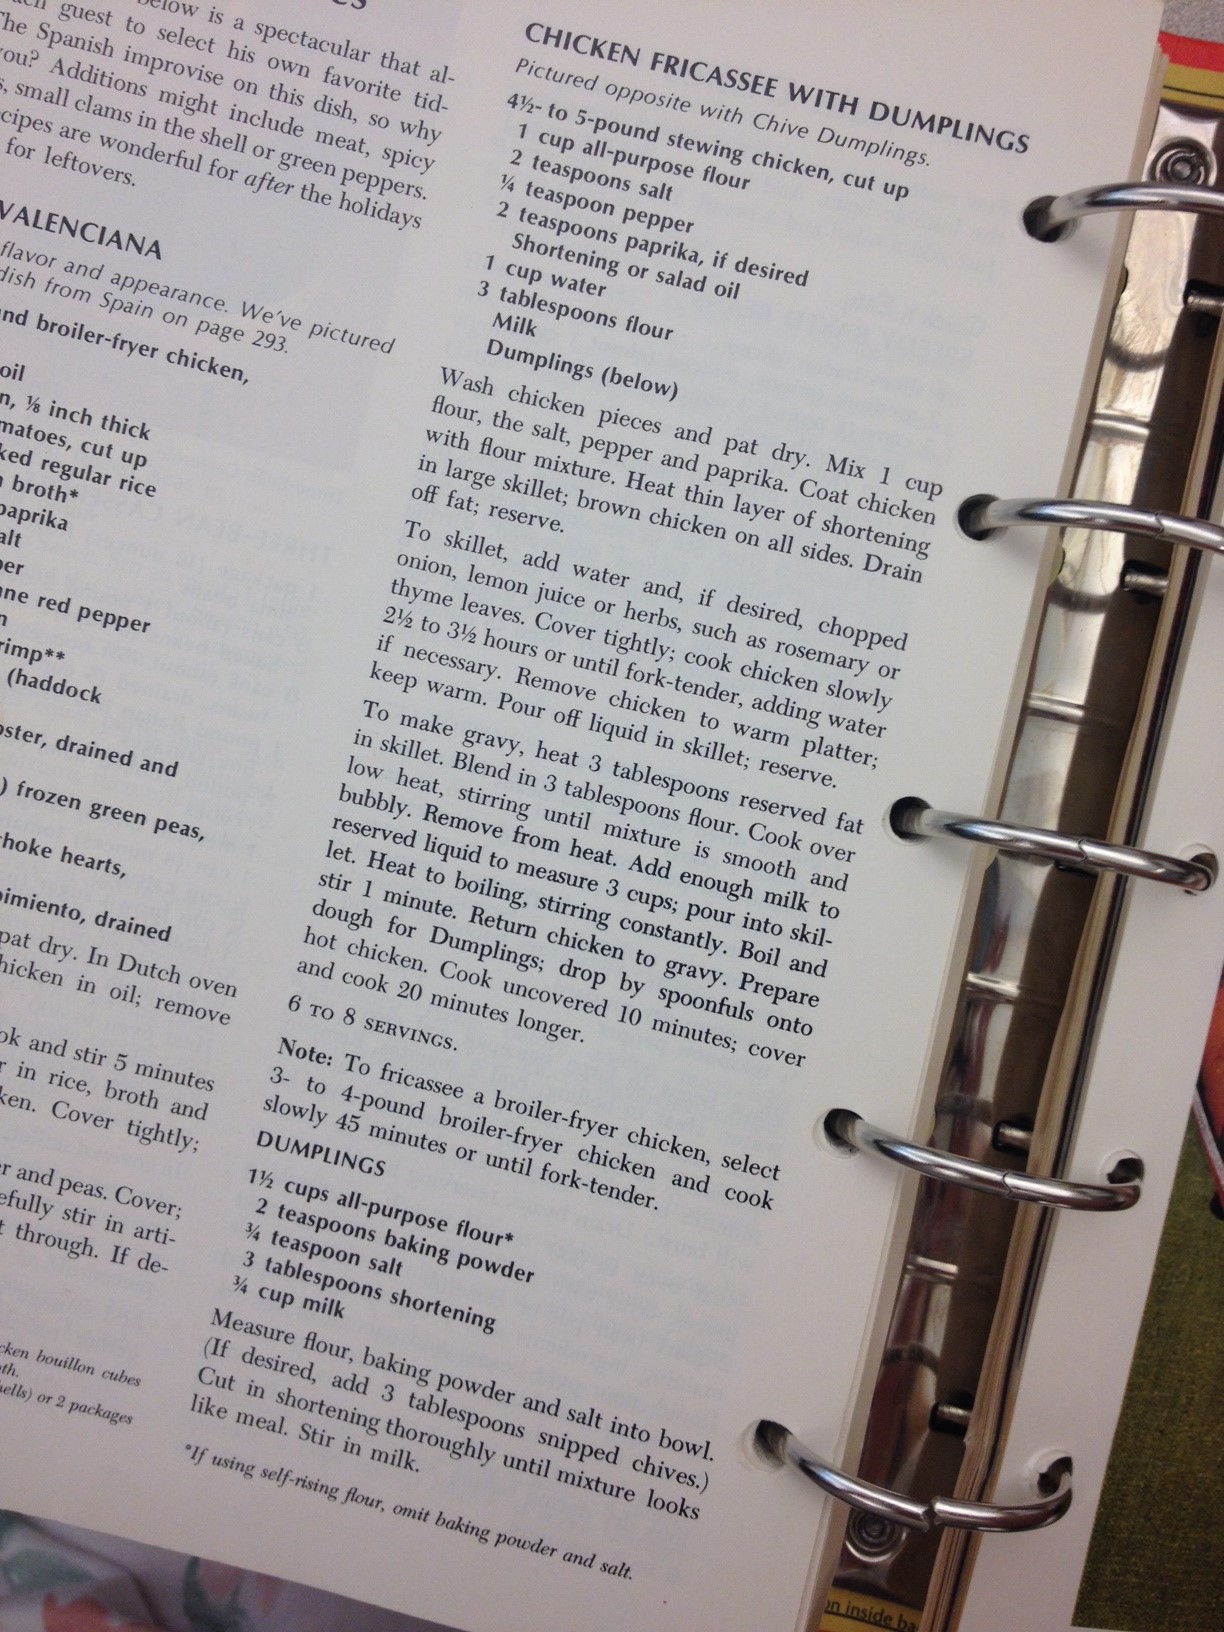 CS
below is a spectacular that al-
each guest to select his own favorite tid-
The Spanish improvise on this dish, so why
you? Additions might include meat, spicy
s, small clams in the shell or green peppers.
ecipes are wonderful for after the holidays
for leftovers.
VALENCIANA
flavor and appearance. We've pictured
dish from Spain on page 293.
und broiler-fryer chicken,
oil
n, ⅛ inch thick
matoes, cut up
ked regular rice
n broth*
paprika
alt
per
nne red pepper
n
rimp**
(haddock
bster, drained and
) frozen green peas,
choke hearts,
pimiento, drained
pat dry. In Dutch oven
hicken in oil; remove
ok and stir 5 minutes
r in rice, broth and
ken. Cover tightly;
er and peas. Cover;
efully stir in arti-
t through. If de-
cken bouillon cubes
oth.
hells) or 2 packages
CHICKEN FRICASSEE WITH DUMPLINGS
Pictured opposite with Chive Dumplings.
4½- to 5-pound stewing chicken, cut up
1 cup all-purpose flour
2 teaspoons salt
¼ teaspoon pepper
2 teaspoons paprika, if desired
Shortening or salad oil
1 cup water
3 tablespoons flour
Milk
Dumplings (below)
Wash chicken pieces and pat dry. Mix 1 cup
flour, the salt, pepper and paprika. Coat chicken
with flour mixture. Heat thin layer of shortening
in large skillet; brown chicken on all sides. Drain
off fat; reserve.
To skillet, add water and, if desired, chopped
onion, lemon juice or herbs, such as rosemary or
thyme leaves. Cover tightly; cook chicken slowly
2½ to 3½ hours or until fork-tender, adding water
if necessary. Remove chicken to warm platter;
keep warm. Pour off liquid in skillet; reserve.
To make gravy, heat 3 tablespoons reserved fat
in skillet. Blend in 3 tablespoons flour. Cook over
low heat, stirring until mixture is smooth and
bubbly. Remove from heat. Add enough milk to
reserved liquid to measure 3 cups; pour into skil-
let. Heat to boiling, stirring constantly. Boil and
stir 1 minute. Return chicken to gravy. Prepare
dough for Dumplings; drop by spoonfuls onto
hot chicken. Cook uncovered 10 minutes; cover
and cook 20 minutes longer.
6 TO 8 SERVINGS.
Note: To fricassee a broiler-fryer chicken, select
3- to 4-pound broiler-fryer chicken and cook
slowly 45 minutes or until fork-tender.
DUMPLINGS
1½ cups all-purpose flour*
2 teaspoons baking powder
¾ teaspoon salt
3 tablespoons shortening
¾ cup milk
Measure flour, baking powder and salt into bowl.
(If desired, add 3 tablespoons snipped chives.)
Cut in shortening thoroughly until mixture looks
like meal. Stir in milk.
*If using self-rising flour, omit baking powder and salt.
on inside ba